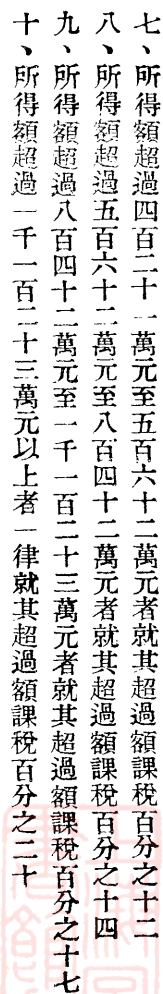 七、所得額超過四百二十一萬元至五百六十二萬元者就其超過額課稅百分之十二
八、所得額超過五百六十二萬元至八百四十二萬元者就其超過額課稅百分之十四
九、所得額超過八百四十二萬元至一千一百二十三萬元者就其超過額課稅百分之十七
十、所得額超過一千一百二十三萬元以上者一律就其超過額課稅百分之二十